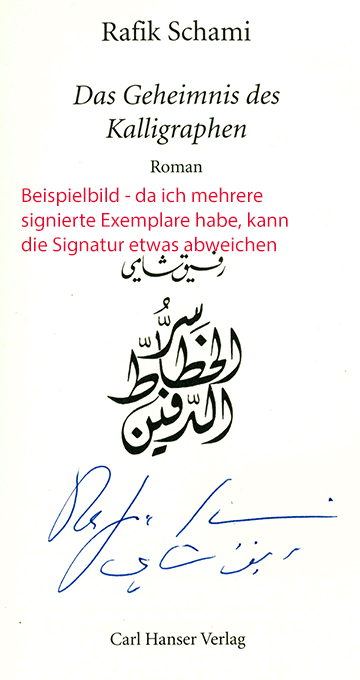 Rafik Schami
Das Geheimnis des
Kalligraphen
Roman
Beispielbild - da ich mehrere
signierte Exemplare habe, kann
die Signatur etwas abweichen
رفيق شامي
سرّ
الخطّاط
الدّفين
رفيق شامي
Carl Hanser Verlag